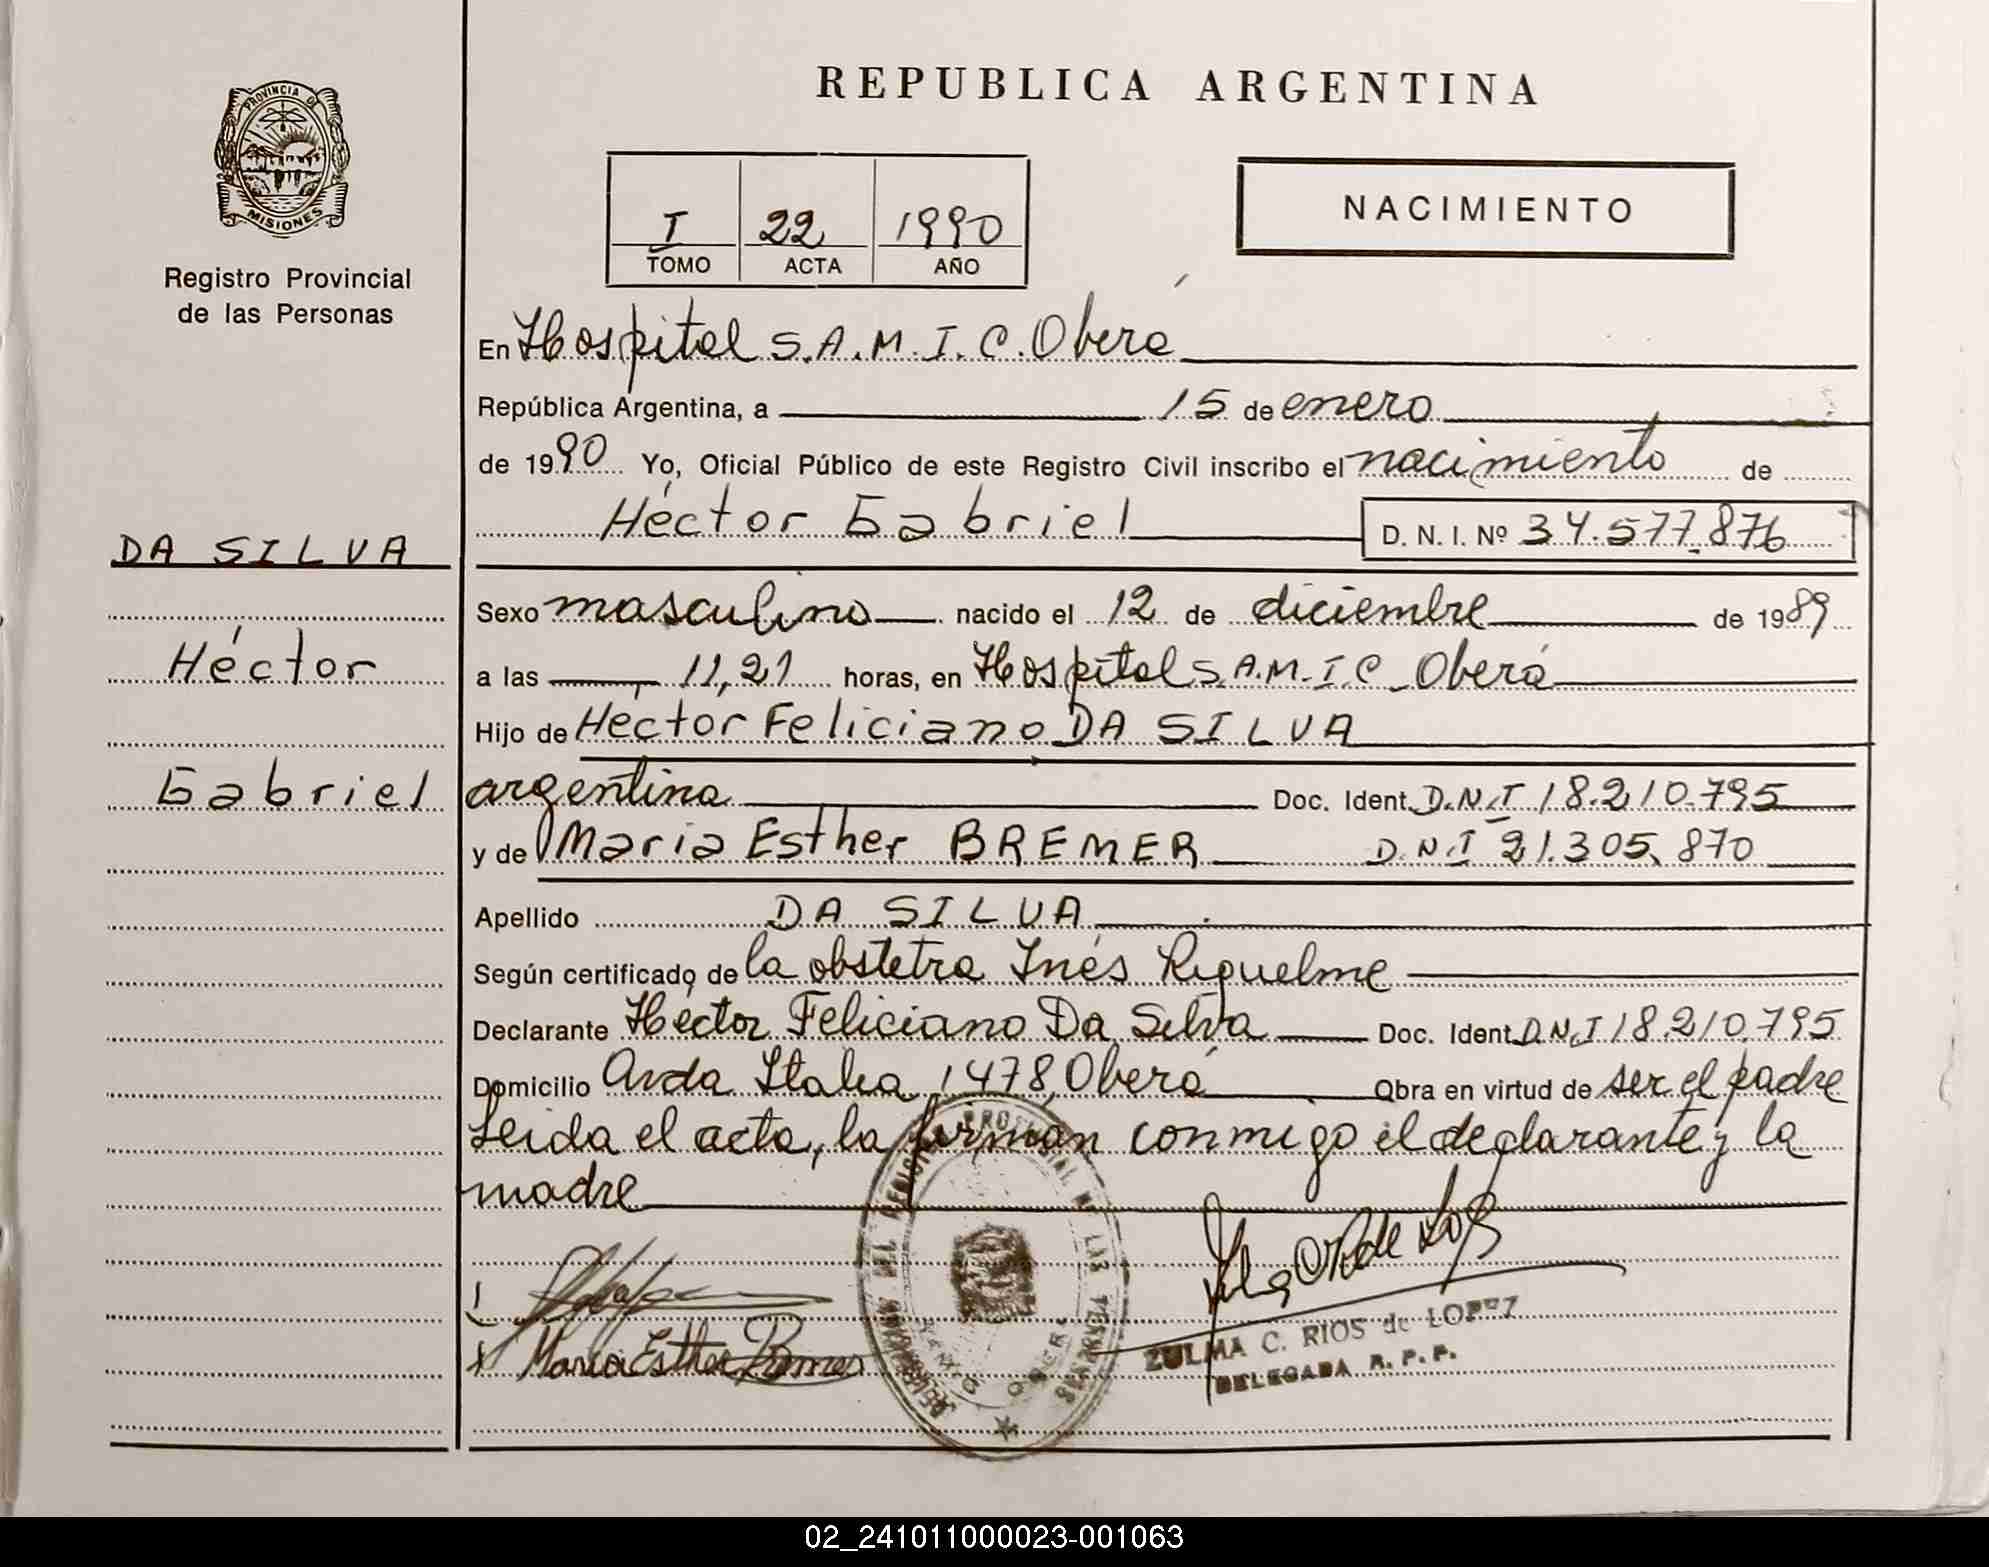 REPUBLICA ARGENTINA
PROVINCIA DE
MISIONES
Registro Provincial
de las Personas
I 22 1990
TOMO ACTA AÑO
NACIMIENTO
En Hospital S.A.M.I.C. Oberá
República Argentina, a 15 de enero
de 1990 Yo, Oficial Público de este Registro Civil inscribo el nacimiento de
Héctor Gabriel D. N. I. Nº 34.577.876
DA SILVA
Sexo masculino nacido el 12 de diciembre de 1989
Héctor
a las 11,21 horas, en Hospital S.A.M.I.C. Oberá
Hijo de Héctor Feliciano DA SILVA
Gabriel
argentina Doc. Ident. D.N.I 18.210.795
y de María Esther BREMER D.N.I 21.305.870
Apellido DA SILVA
Según certificado de la obstetra Inés Riquelme
Declarante Héctor Feliciano Da Silva Doc. Ident. D.N.I 18.210.795
Domicilio Avda Italia 1478, Oberá Obra en virtud de ser el padre
Leida el acta, la firman conmigo el declarante y la
madre
María Esther Bremer
ZULMA C. RIOS de LOPEZ
DELEGADA R. P. P.
02_241011000023-001063